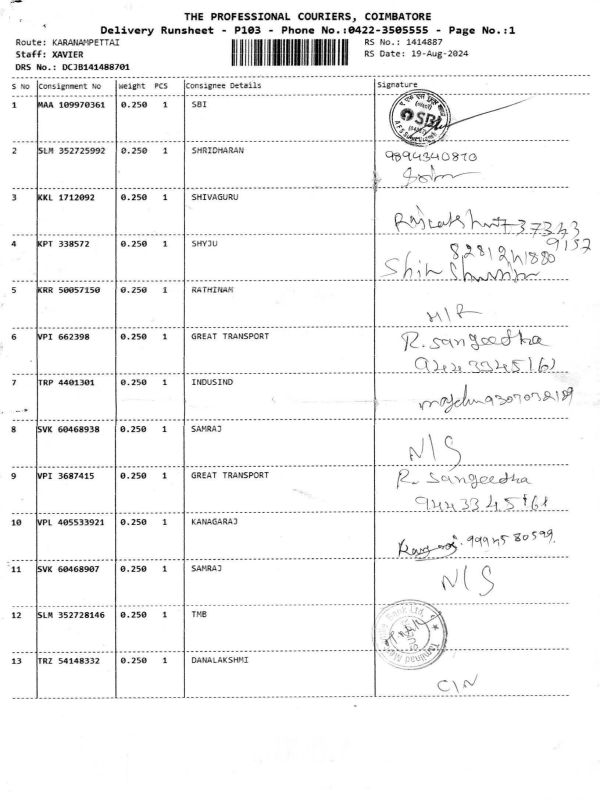 THE PROFESSIONAL COURIERS, COIMBATORE
Delivery Runsheet - P103 - Phone No.:0422-3505555 - Page No.:1
Route: KARANAMPETTAI RS No.: 1414887
Staff: XAVIER RS Date: 19-Aug-2024
DRS No.: DCJB141488701
S No Consignment No Weight PCS Consignee Details Signature
1 MAA 109970361 0.250 1 SBI
SBI
2 SLM 352725992 0.250 1 SHRIDHARAN
9894340870
3 KKL 1712092 0.250 1 SHIVAGURU
37343
9157
4 KPT 338572 0.250 1 SHYJU
5 KRR 50057150 0.250 1 RATHINAM
6 VPI 662398 0.250 1 GREAT TRANSPORT R. Sangeedha
7 TRP 4401301 0.250 1 INDUSIND
8 SVK 60468938 0.250 1 SAMRAJ N/S
9 VPI 3687415 0.250 1 GREAT TRANSPORT R. Sangeedha
10 VPL 405533921 0.250 1 KANAGARAJ
9994580599
11 SVK 60468907 0.250 1 SAMRAJ N/S
12 SLM 352728146 0.250 1 TMB
13 TRZ 54148332 0.250 1 DANALAKSHMI
C/N